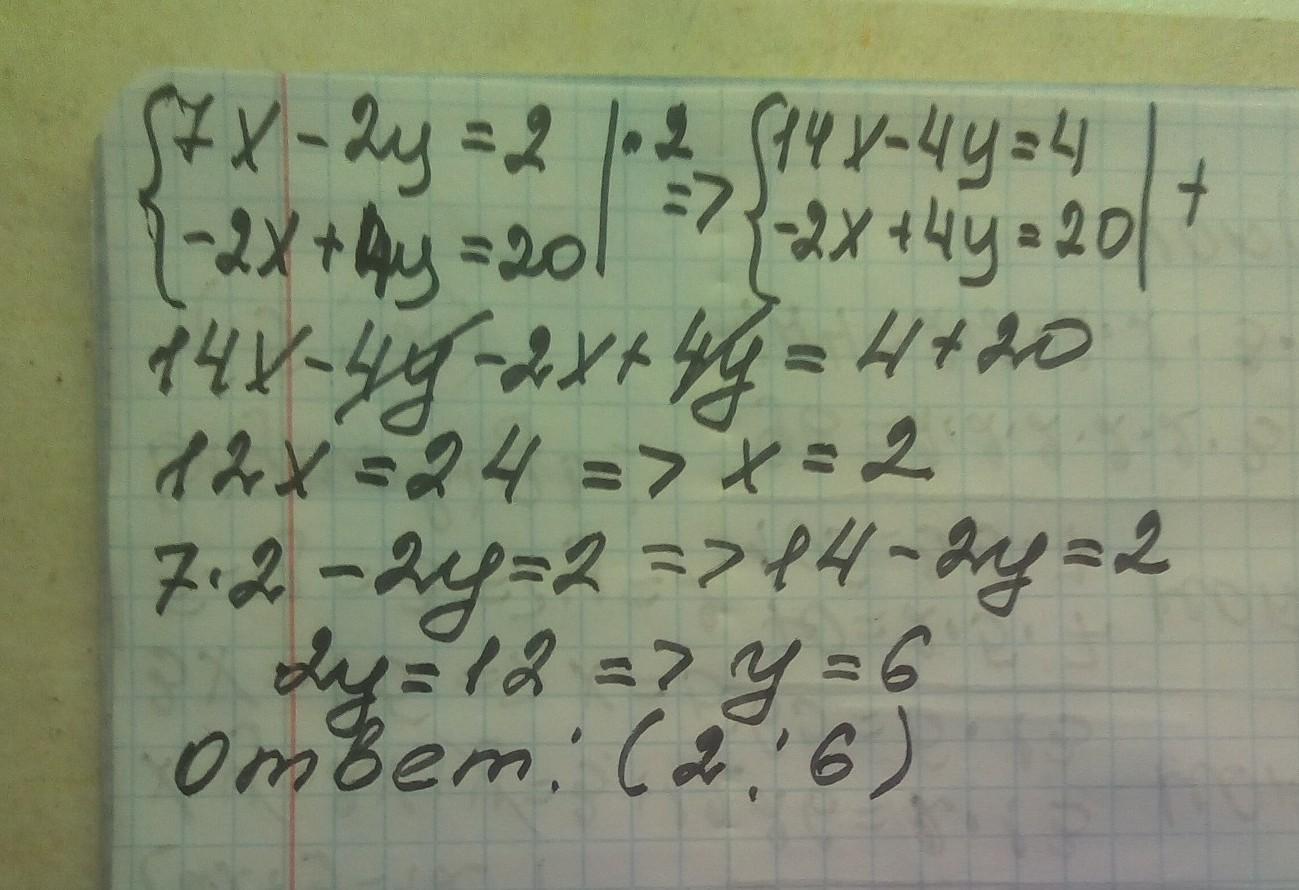 {7x-2y=2 |·2 => {14x-4y=4 | +
{-2x+4y=20 | {-2x+4y=20 |
14x-4y-2x+4y=4+20
12x=24 => x=2
7·2-2y=2 => 14-2y=2
2y=12 => y=6
Ответ: (2;6)